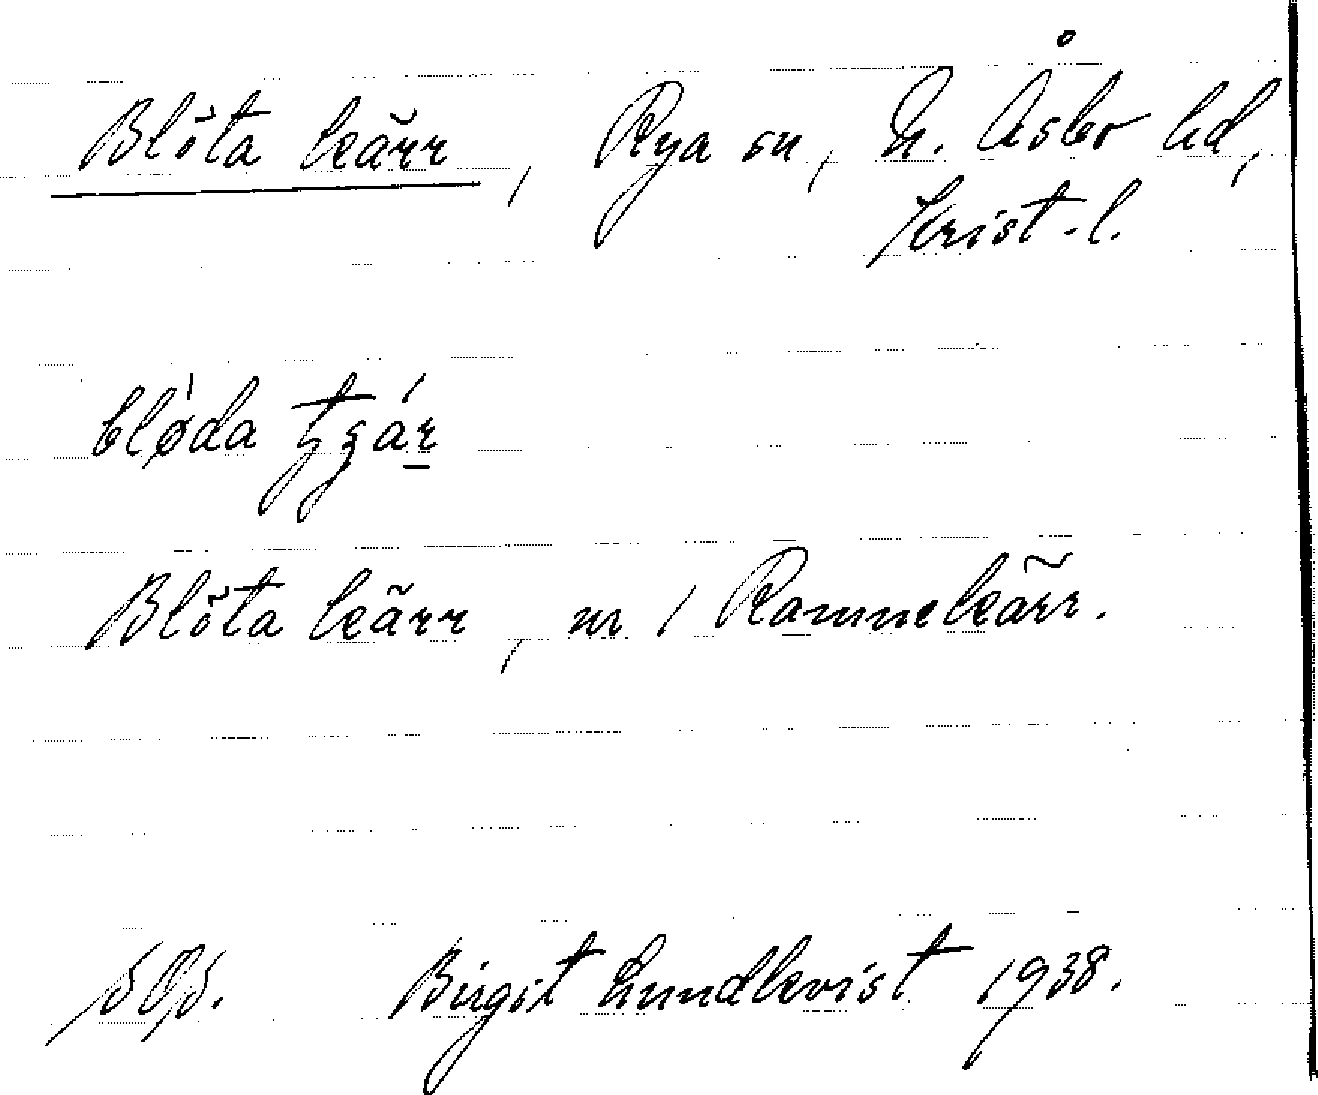 Blöta kärr, Rya sn, N. Åsbo hd,
Krist-l.
bløda
Blöta kärr, nr 1 Rammekärr.
Birgit Lundkvist 1938.